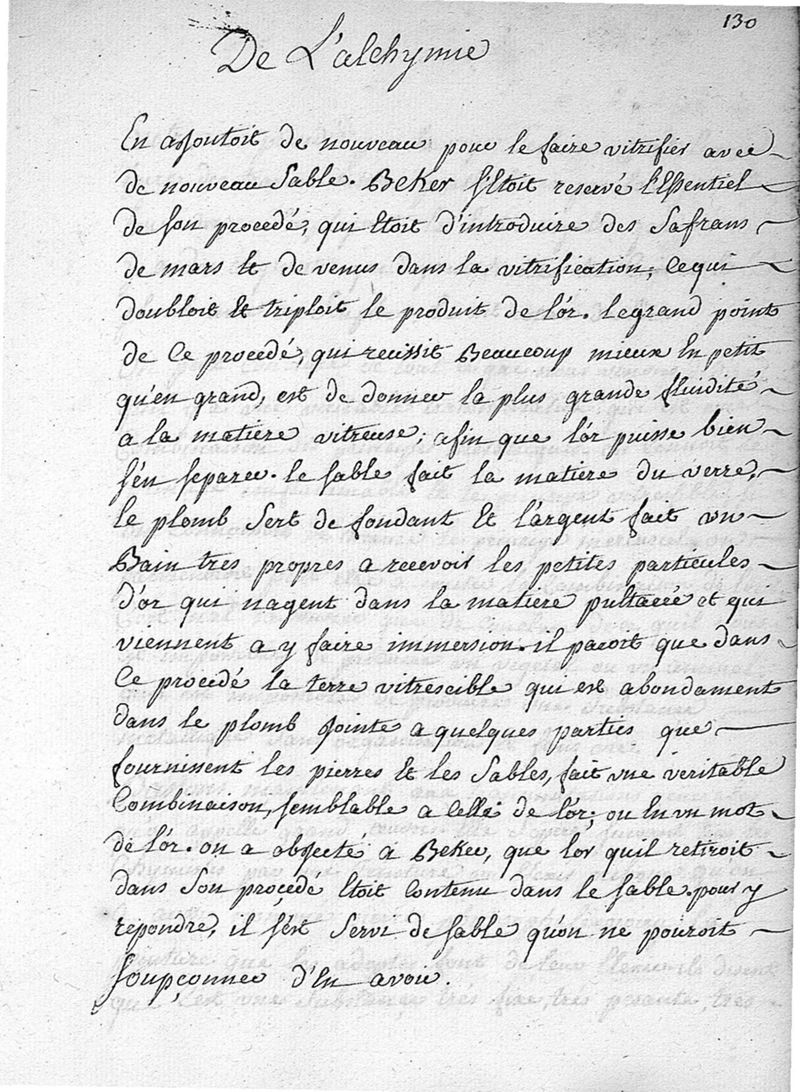 130
De L'alchymie
En ajoutoit de nouveau pour le faire vitrifier avec
de nouveau Sable. Beker s'Etoit reservé l'Essentiel
de son procedé, qui Etoit d'introduire des Safrans
de mars Et de venus dans la vitrification; Ce qui
doubloit Et triploit le produit de l'or. le grand point
de Ce procedé, qui reussit Beaucoup mieux En petit
qu'en grand, est de donner la plus grande fluidité
a la matiere vitreuse; afin que l'or puisse bien
s'en separer. le sable fait la matiere du verre,
le plomb Sert de fondant Et l'argent fait un
Bain tres propres a recevoir les petites particules
d'or qui nagent dans la matiere pultacéé et qui
viennent a y faire immersion. il paroit que dans
Ce procedé la terre vitrescible qui est abondament
dans le plomb Jointe a quelques parties que
fournissent les pierres Et les Sables, fait une veritable
Combinaison, semblable a Celle de l'or; ou En un mot
de l'or. on a objecté a Beker, que lor quil retiroit
dans Son procede Etoit Contenu dans le sable. pour y
repondre, il s'est Servi de sable qu'on ne pouroit
soupçonner d'En avoir.